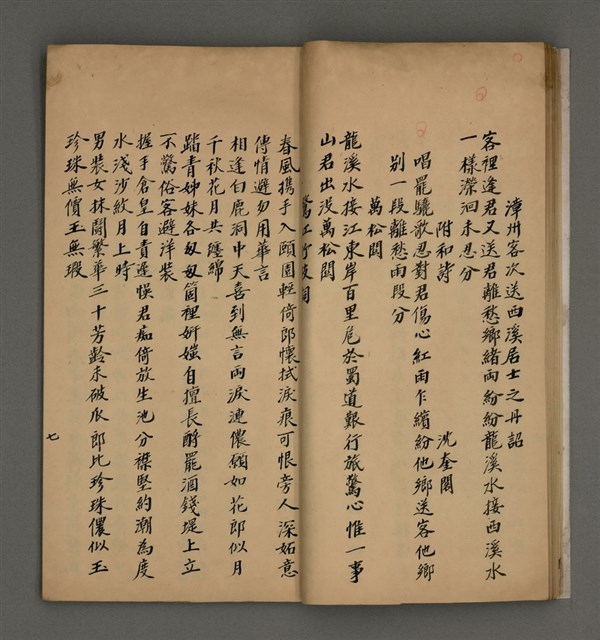 漳州客次送西溪居士之丹詔
客裡逢君又送君離愁鄉緒兩紛紛龍溪水接西溪水
一樣瀠洄未忍分
附和詩　沈奎閣
唱罷驪歌忍對君傷心紅雨乍繽紛他鄉送客他鄉
別一段離愁兩段分
龍溪水接江東岸百里危於蜀道艱行旅驚心惟一事
山君出沒萬松關
萬松關
鷺江竹枝詞
春風携手入頤園輕倚郎懷拭淚痕可恨旁人深妬意
傳情避勿用華言
相逢白鹿洞中天喜到無言兩淚漣儂願如花郎似月
千秋花月共纏綿
踏青姊妹各匆匆箇裡妍媸自擅長酧罷酒錢堤上立
不驚俗客避洋裝
握手倉皇自責遲悞君痴倚放生池分襟堅約潮為度
水淺沙紋月上時
男裝女抹鬧繁華三十芳齡未破瓜郎比珍珠儂似玉
珍珠無價玉無瑕
七